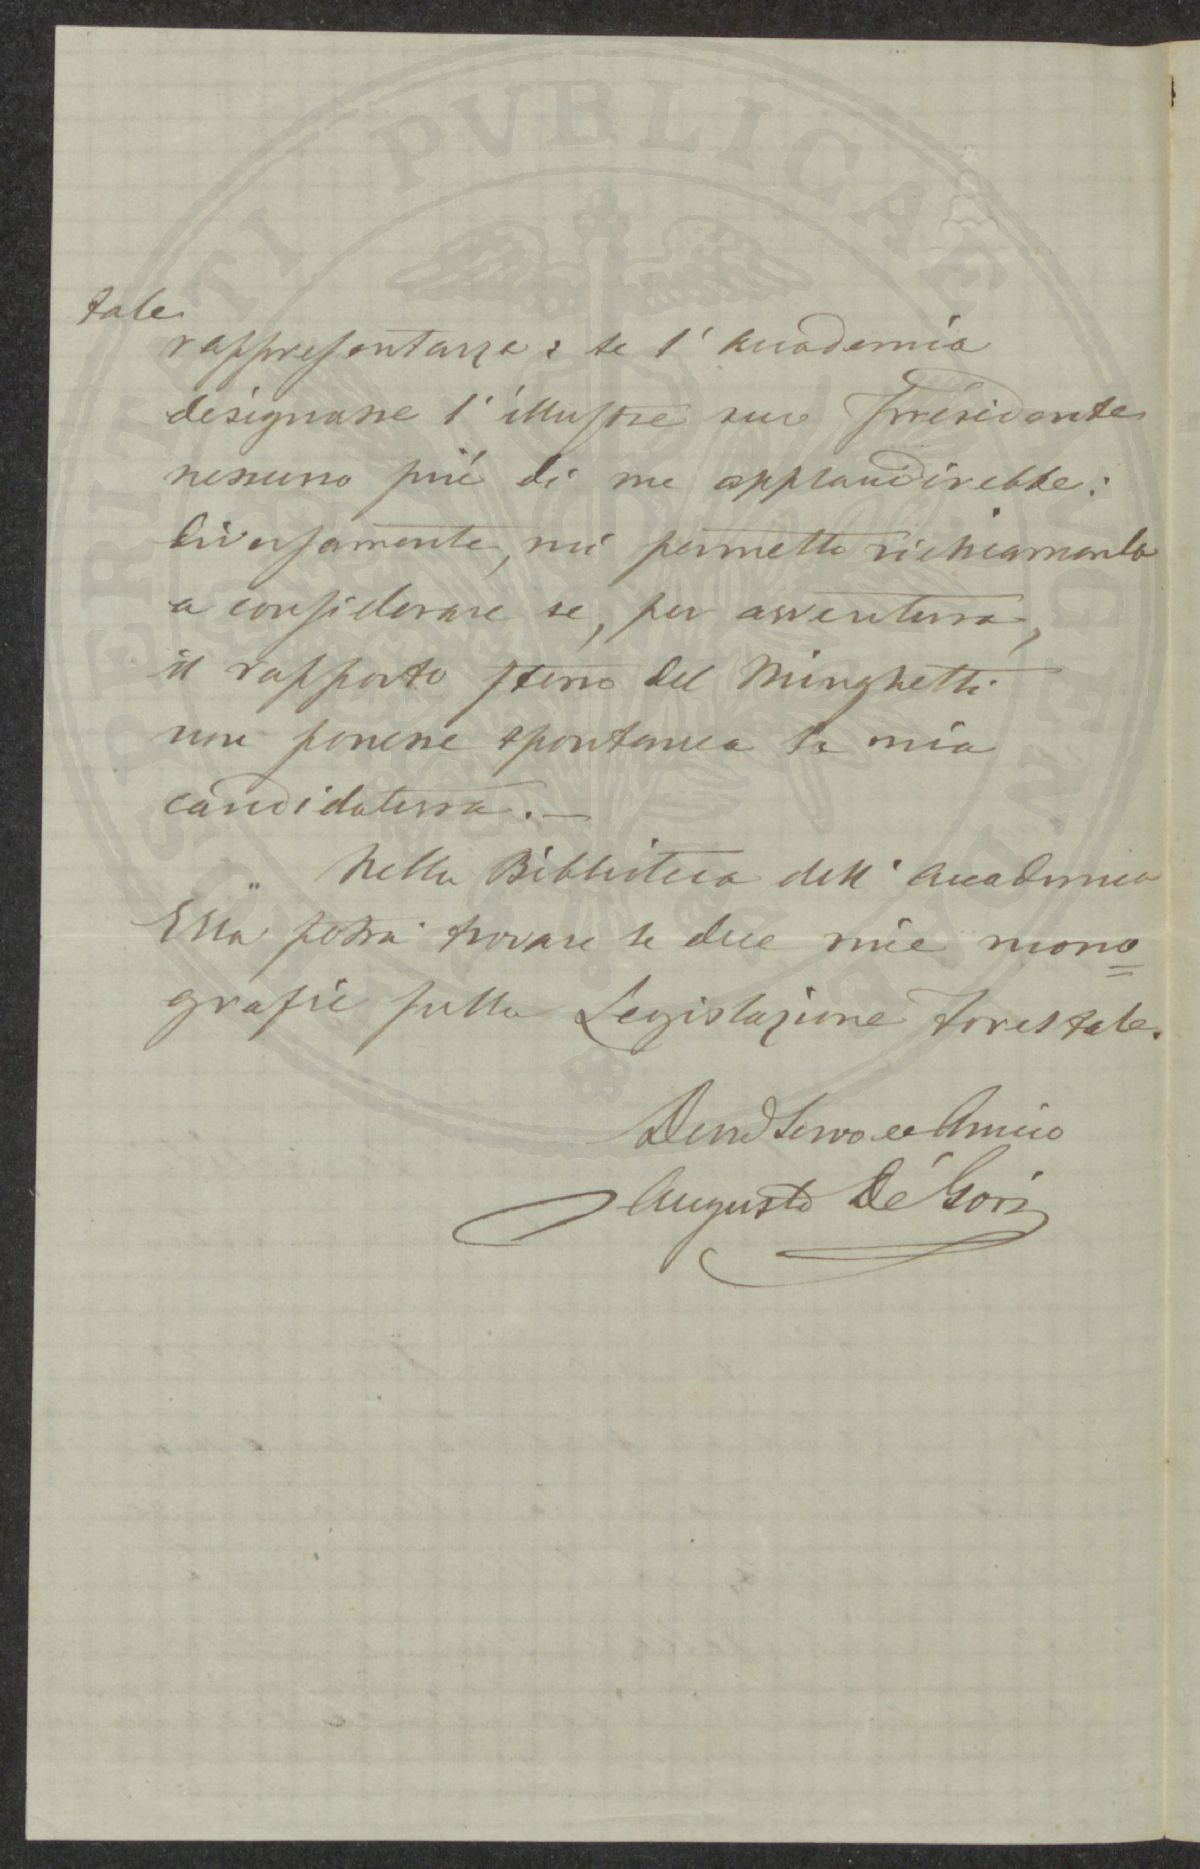 tale
rappresentanza: se l'Accademia
designasse l'illustre suo Presidente
nessuno più di me applaudirebbe:
diversamente, mi permetto richiamarla
a considerare se, per avventura,
il rapporto stesso del Minghetti
non ponesse spontanea la mia
candidatura. —
Nella Biblioteca dell'Accademia
Ella potrà trovare le due mie mono=
grafie sulla Legislazione forestale.
Servo ed Amico
Augusto De' Gori
PERITI PVBLICAE